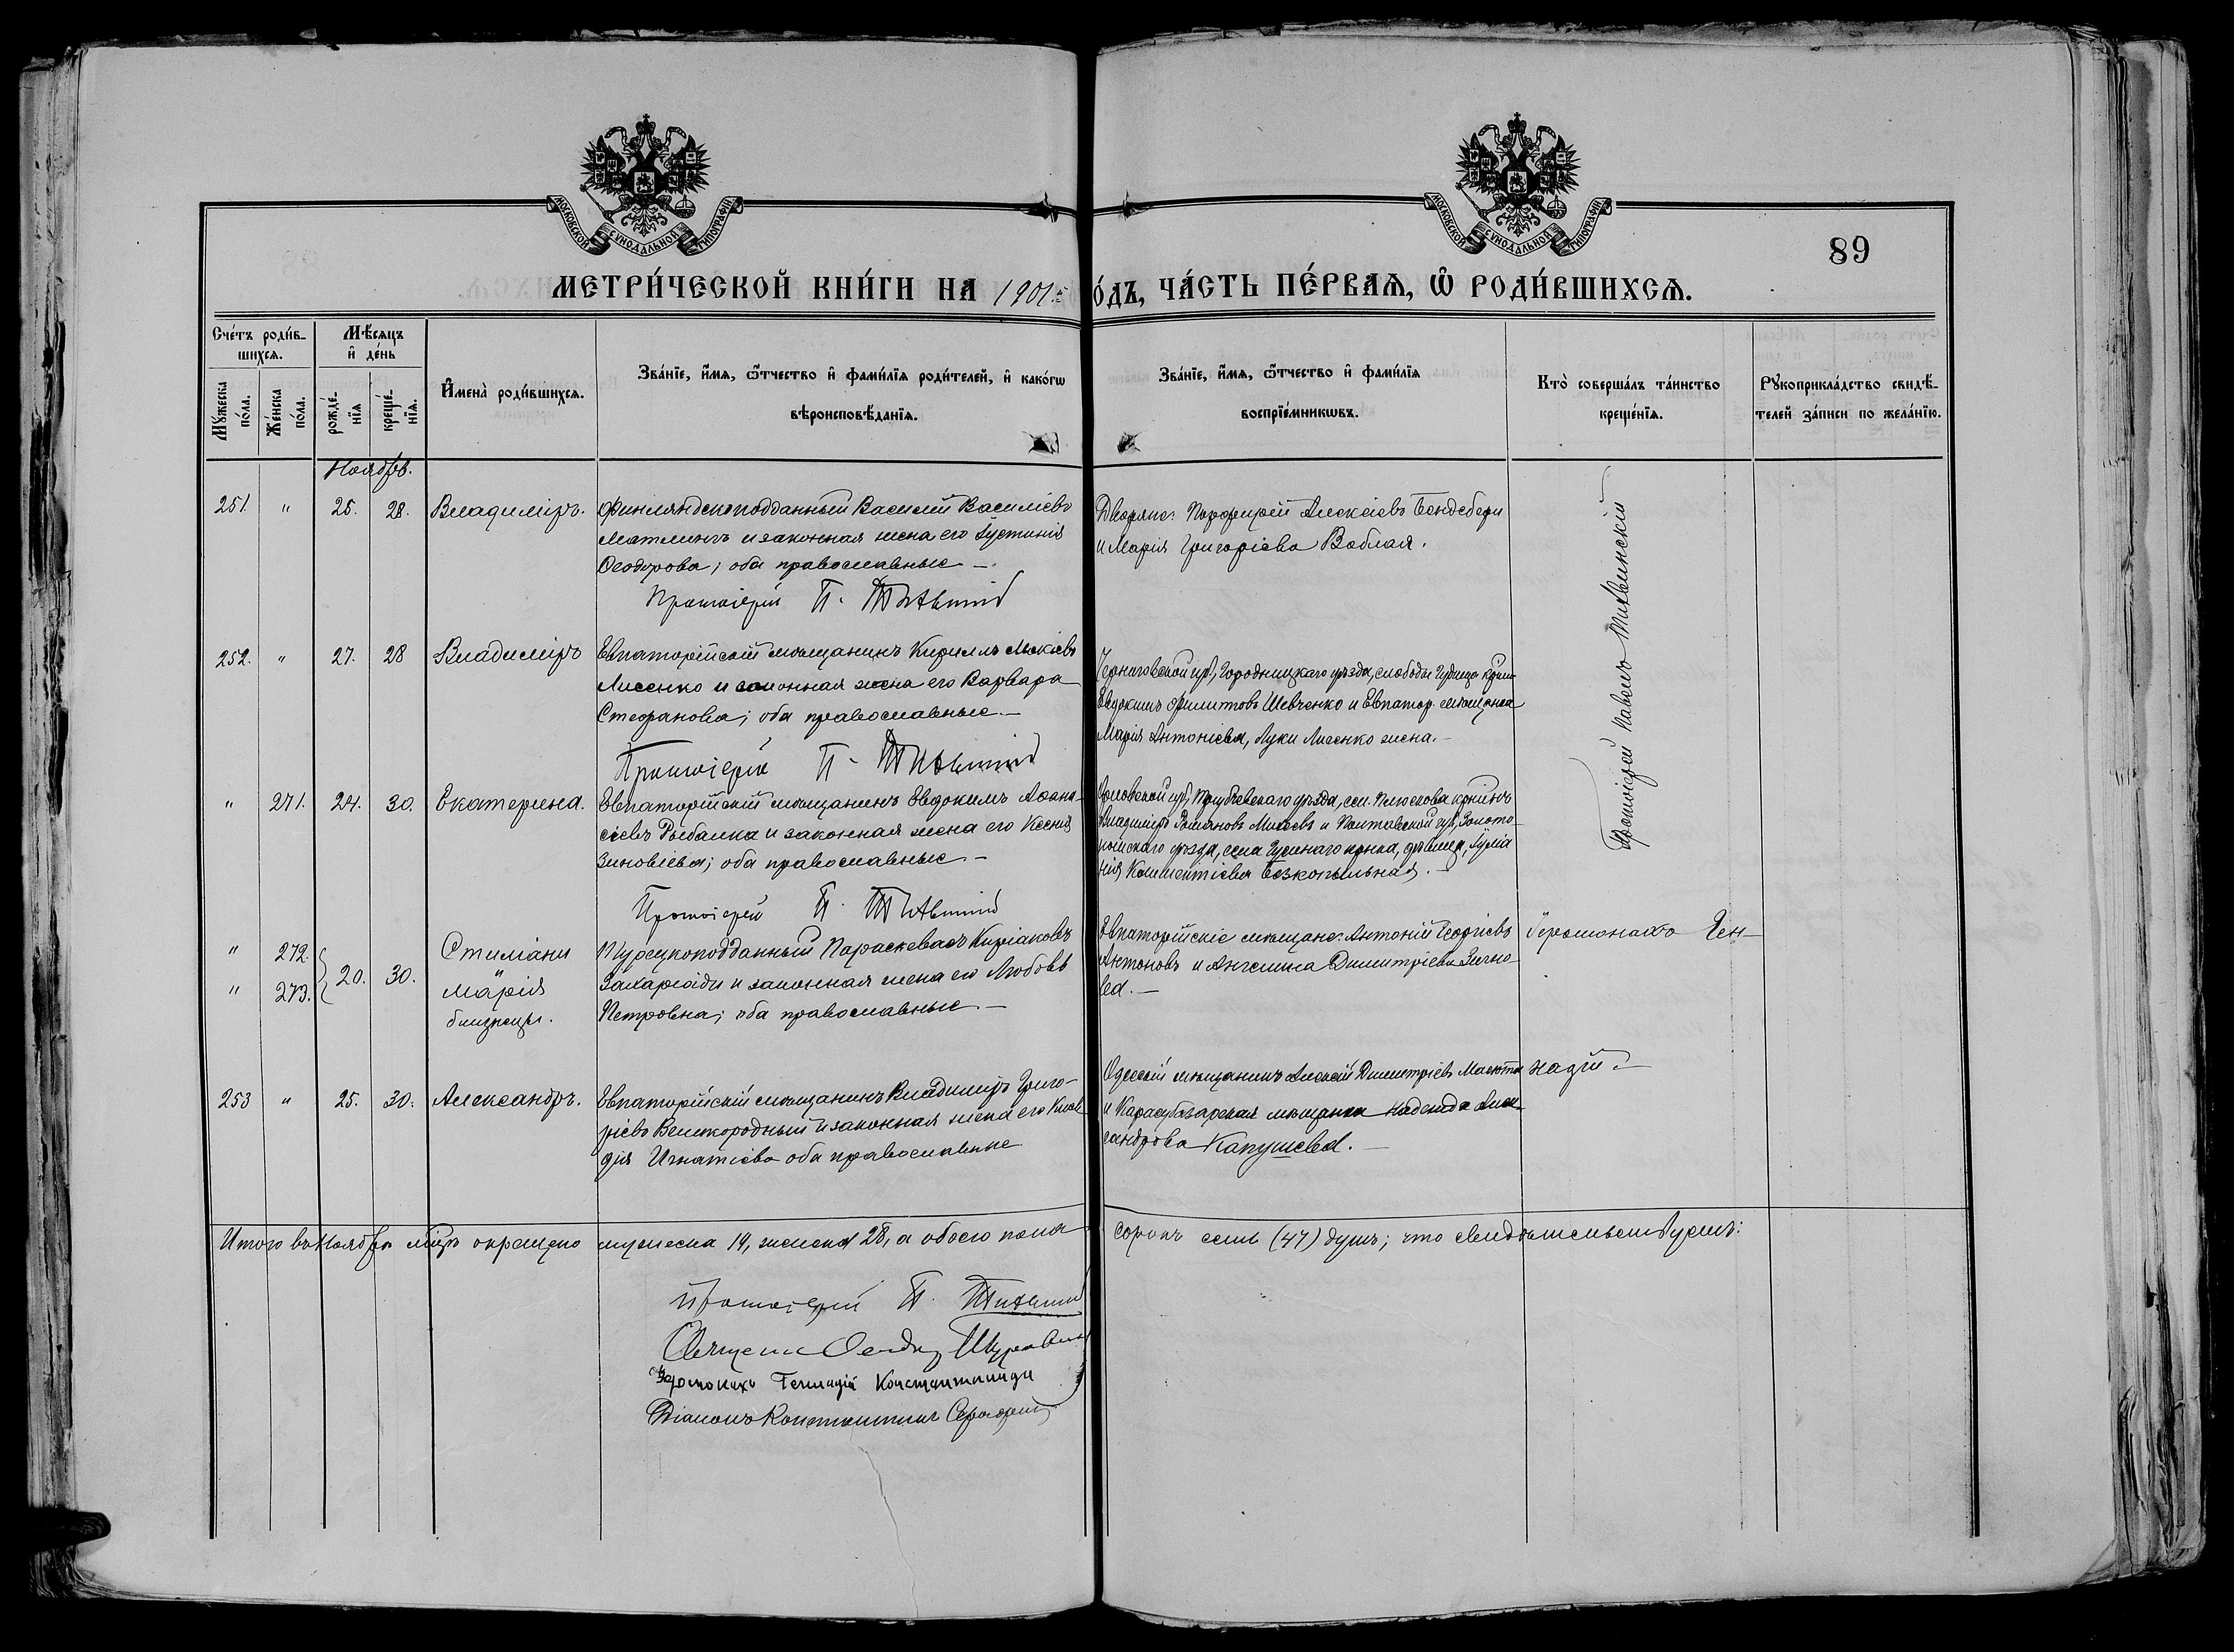 МОСКОВСКОЙ СѴНОДАЛЬНОЙ ТИПОГРАФІИ
МОСКОВСКОЙ СѴНОДАЛЬНОЙ ТИПОГРАФІИ
89
МЕТРИ́ЧЕСКОЙ КНИ́ГИ НА 1901 ГО́ДЪ, ЧА́СТЬ ПЕ́РВАѦ, Ѡ҆ РОДИ́ВШИХСѦ.
Сче́тъ роди́в-
шихсѧ.
Мꙋ́жеска по́ла.
Же́нска по́ла.
Мѣ́сѧцъ
и҆ де́нь
рожде́-
нїѧ
креще́-
нїѧ.
И҆мена̀ роди́вшихсѧ.
Зва́нїе, и҆́мѧ, ѻ҆́тчество и҆ фами́лїѧ роди́телей, и҆ како́гѡ
вѣроисповѣ́данїѧ.
Зва́нїе, и҆́мѧ, ѻ҆́тчество и҆ фами́лїѧ
воспрїе́мникѡвъ.
Кто̀ соверша́лъ та́инство
креще́нїѧ.
Рꙋкоприкла́дство свидѣ́-
телей за́писи по жела́нїю.
Ноябрь.
251. " 25. 28. Владиміръ.
Финляндскоподданный Василій Васильевъ
Матлинъ и законная жена его Іустинія
Ѳеодорова; оба православные. —
Протоіерей П. Тихвинскій
Дворяне: Порфирій Алексіевъ Бендебери
и Марія Григоріева Воблая.
Протоіерей Павелъ Тихвинскій
252. " 27. 28 Владиміръ
Евпаторійскій мѣщанинъ Кириллъ Лукіевъ
Лисенко и законная жена его Варвара
Стефанова; оба православные. —
Протоіерей П. Тихвинскій
Черниговской губ., Городницкаго уѣзда, слободы
Евдокимъ Филиповъ Шевченко и Евпатор. мѣщанка
Марія Антоніева, Луки Лисенко жена. —
" 271. 24. 30. Екатерина.
Евпаторійскій мѣщанинъ Евдокимъ Аѳана-
сіевъ Рыбалка и законная жена его Ксенія
Зиновіева; оба православные —
Протоіерей П. Тихвинскій
Орловской губ., Трубчевскаго уѣзда, сел.
Владиміръ Романовъ и Полтавской губ., Золото-
ношскаго уѣзда, села дѣвица, Іуліа
нія Климентіева Безкопыльная. —
" 272.
" 273.
20. 30.
Стиліани
Марія
близнецы.
Турецкоподданный Параскевасъ Киріаковъ
Захаріади и законная жена его Любовь
Петровна; оба православные. —
Евпаторійскіе мѣщане: Антоній Георгіевъ
Антоновъ и Ангелина Димитріева Зигно-
ва. —
Іеромонахъ Ген-
надій. —
253 " 25. 30. Александръ.
Евпаторійскій мѣщанинъ Владиміръ Григо-
ріевъ Великородный и законная жена его Клав
дія Игнатіева оба православные
Одесскій мѣщанинъ Алексій Димитріевъ Малюта
и Карасубазарская мѣщанка Надежда Алек-
сандрова Капущева. —
Итого въ Ноябрѣ мѣсяцѣ окрещено мужеска 19, женска 28, а обоего пола сорокъ семь (47) душъ; что свидѣтельствуемъ:
Протоіерей П. Тихвинскій
Священникъ
Іеромонахъ Геннадій Константиниди
Діаконъ Константинъ